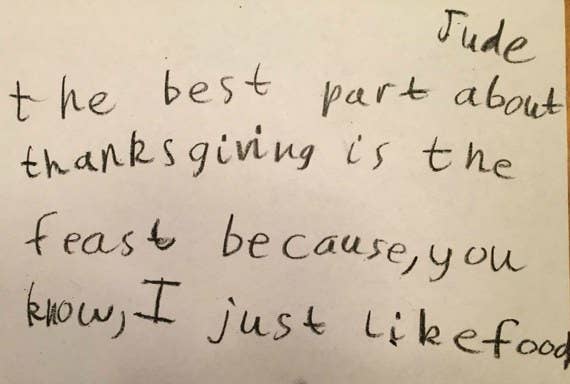 Jude
the best part about
thanksgiving is the
feast because, you
know, I just like food